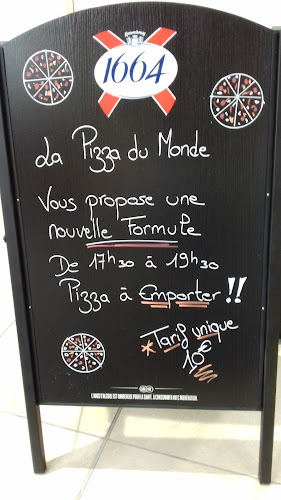 1664
La Pizza du Monde
Vous propose une
nouvelle Formule
De 17h30 à 19h30
Pizza à Emporter !!
* Tarif unique
10€
L'ABUS D'ALCOOL EST DANGEREUX POUR LA SANTÉ, À CONSOMMER AVEC MODÉRATION.